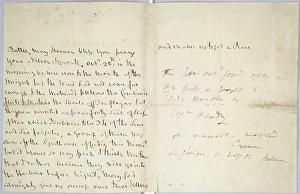 Battle, may Heaven bless you prays
your Nelson & Bronte, Octr 20th in the
morning we were close to the mouth of the
Streights but the wind had not come far
enough to the Westward to allow the Combined
Fleets to weather the shoals off Traflagar but
they were counted as far as forty sail of Ships
of War which I suppose to be 34 of the Line
and six frigates, a group of them was
seen off the Lighthouse of Cadiz this Morng
but it blows so very fresh & thick weather
that I rather believe they will go into
the Harbour before night, May God
Almighty give us success over these fellows
and enable us to get a Peace
This letter was found open on
His Desk & brought to
Lady Hamilton by
Captn Hardy
oh miserable wretched
Emma
oh glorious & happy Nelson